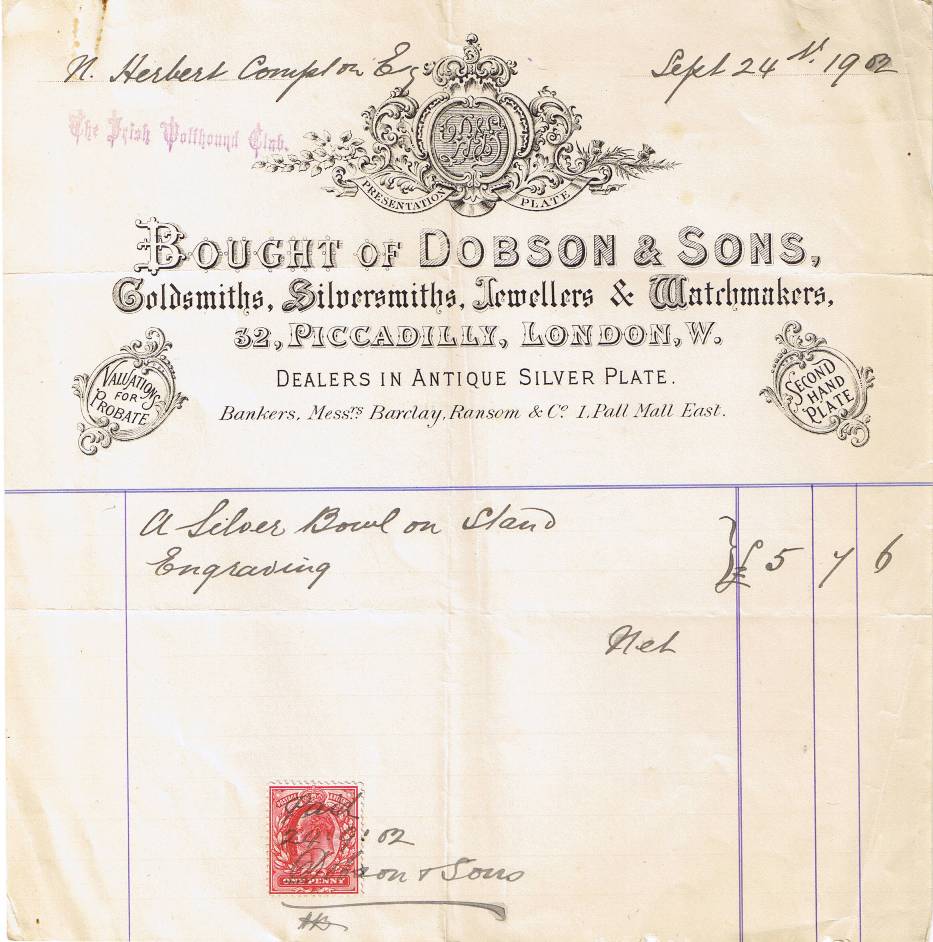 N. Herbert Compton Esq
Sept 24th 1902
The Irish Wolfhound Club.
PRESENTATION PLATE
BOUGHT OF DOBSON & SONS,
Goldsmiths, Silversmiths, Jewellers & Watchmakers,
32, PICCADILLY, LONDON, W.
VALUATIONS
FOR
PROBATE
SECOND
HAND
PLATE
DEALERS IN ANTIQUE SILVER PLATE.
Bankers, Messrs Barclay, Ransom & Co 1, Pall Mall East.
A Silver Bowl on Stand
Engraving
£5 7 6
Net
Paid
29 : 9 : 02
Dobson & Sons
ONE PENNY